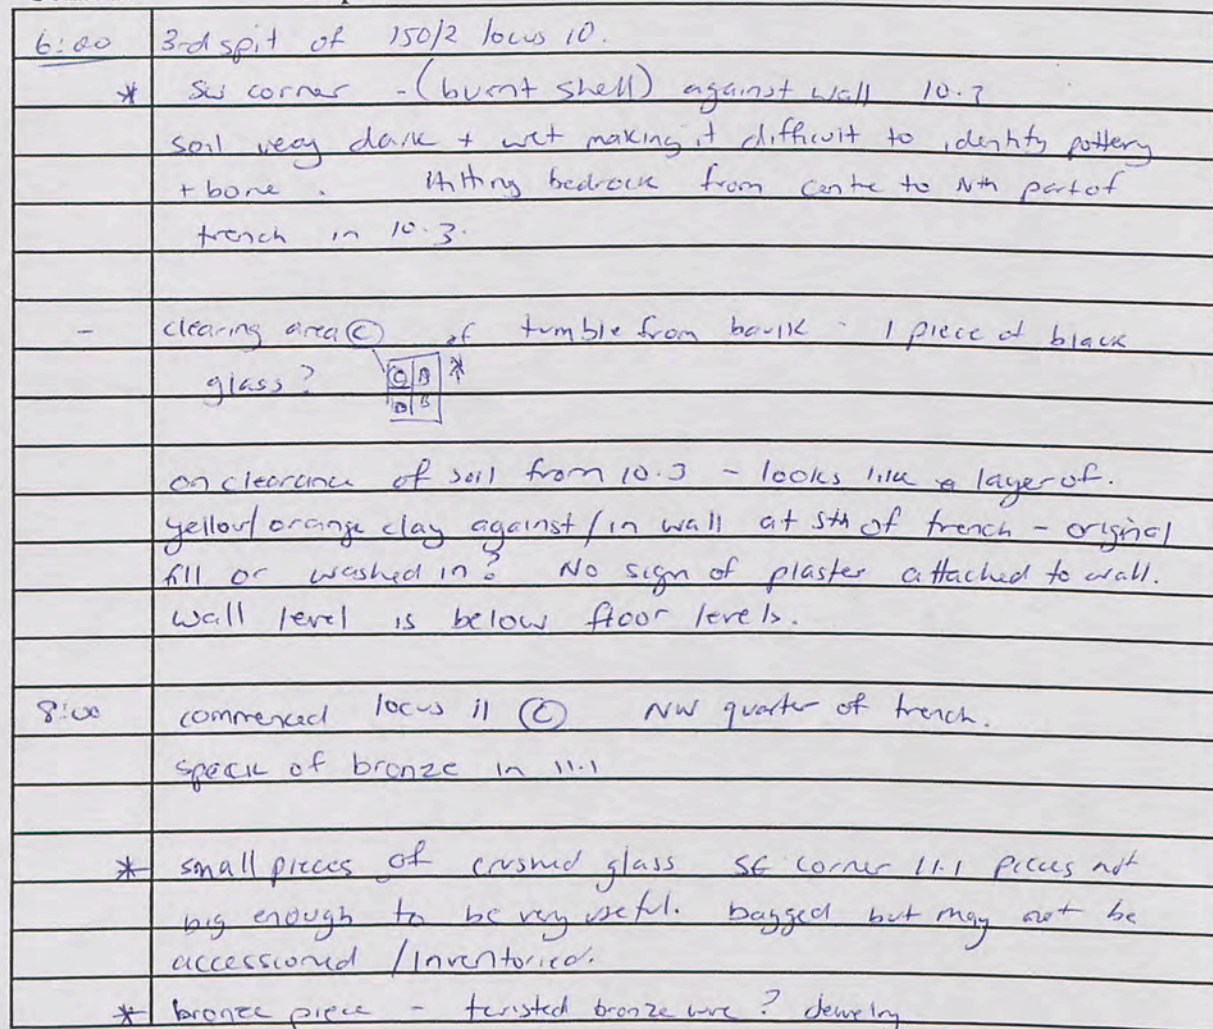 6:00 3rd spit of 150/2 locus 10.
* SW corner - (burnt shell) against wall 10.?
soil very dark + wet making it difficult to identify pottery
+ bone. Hitting bedrock from centre to Nth part of
trench in 10.3.
- clearing area Ⓒ of tumble from baulk - 1 piece of black
glass? Ⓒ A *
D B
on clearance of soil from 10.3 - looks like a layer of.
yellow/orange clay against/in wall at Sth of trench - original
fill or washed in? No sign of plaster attached to wall.
Wall level is below floor levels.
8:00 commenced locus 11 Ⓒ NW quarter of trench.
speck of bronze in 11.1
* small pieces of crushed glass SE corner 11.1 pieces not
big enough to be very useful. bagged but may not be
accessioned /inventoried.
* bronze piece - twisted bronze wire ? jewelry